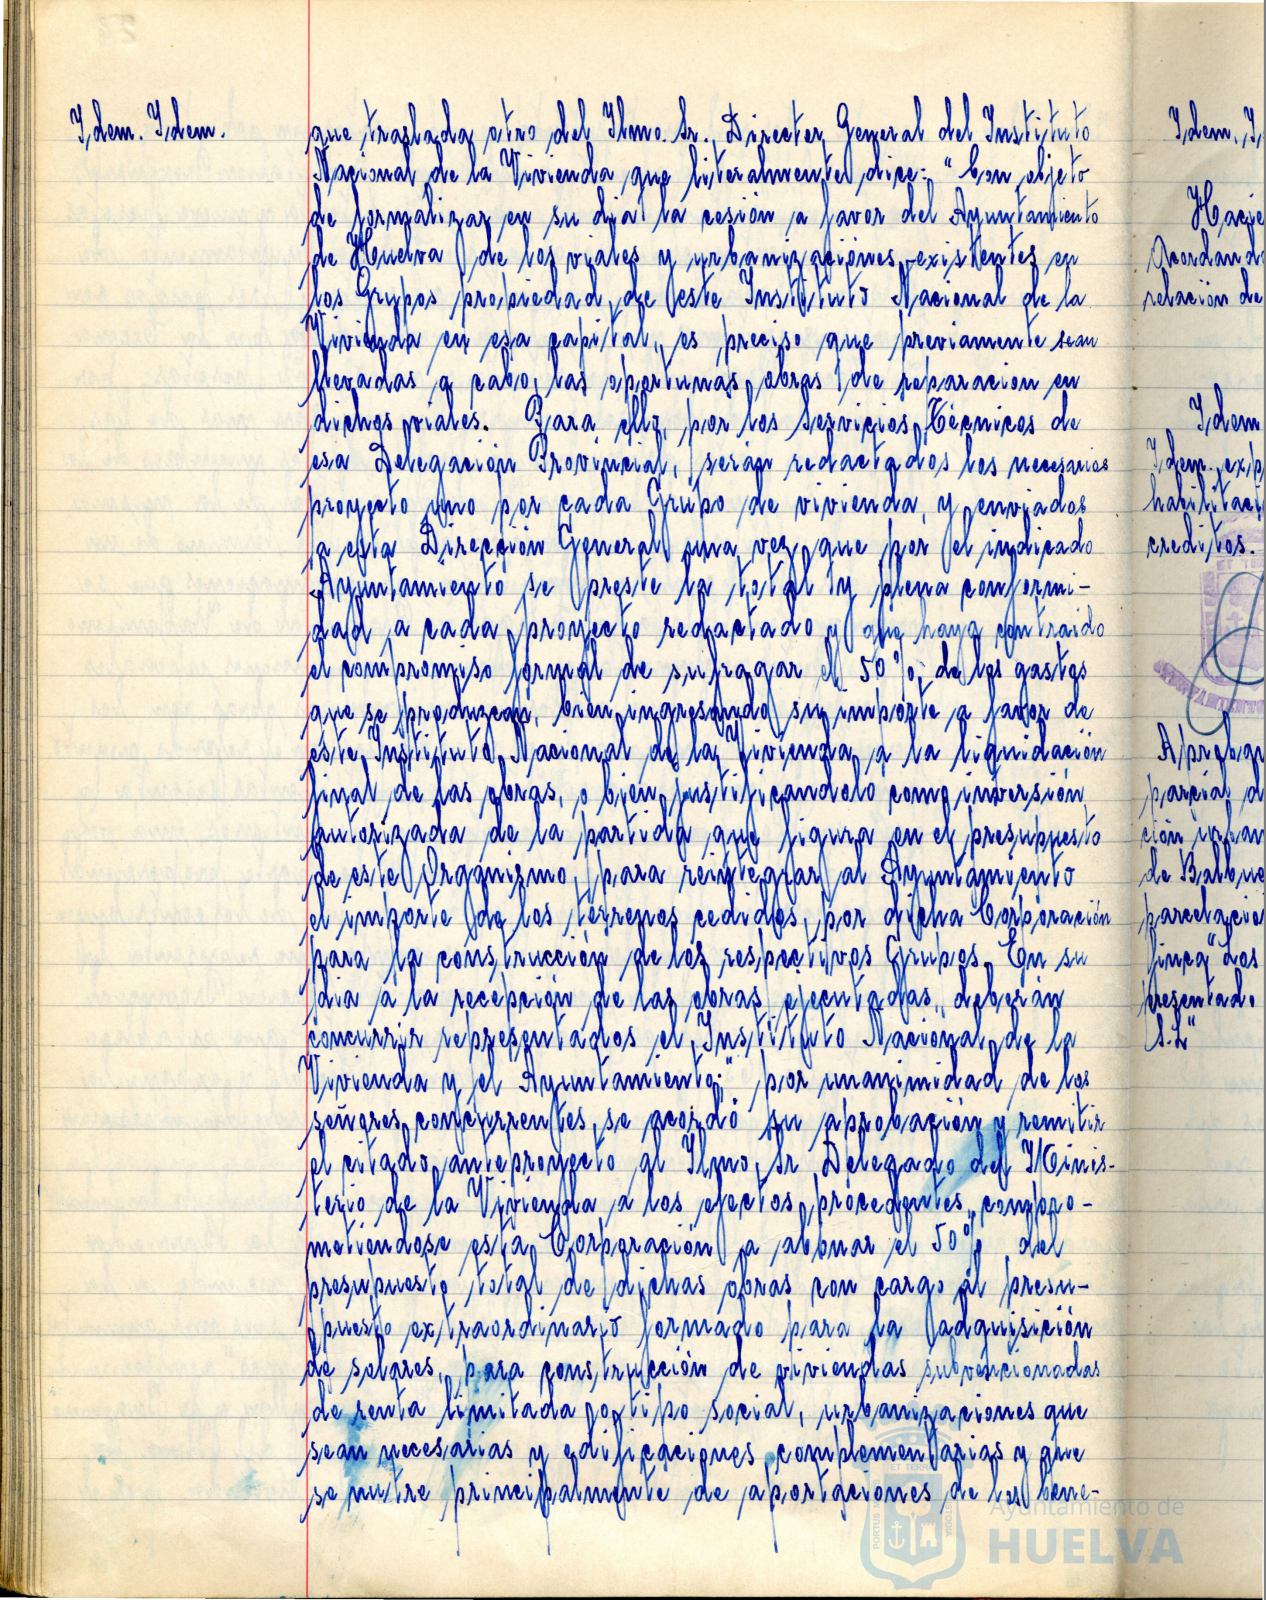 Idem. Idem.
que traslada otro del Ilmo. Sr. Director General del Instituto
Nacional de la Vivienda que literalmente dice: "Con objeto
de formalizar en su dia la cesión a favor del Ayuntamiento
de Huelva de los viales y urbanizaciones existentes en
los Grupos propiedad de este Instituto Nacional de la
Vivienda en esa capital, es preciso que previamente sean
llevadas a cabo las oportunas obras de reparacion en
dichos viales. Para ello, por los Servicios Técnicos de
esa Delegación Provincial, serán redactados los necesarios
proyecto uno por cada Grupo de vivienda, y enviados
a esta Dirección General una vez que por el indicado
Ayuntamiento se preste la total y plena conformi-
dad a cada proyecto redactado y que haya contraido
el compromiso formal de sufragar el 50% de los gastos
que se produzcan, bien ingresando su importe a favor de
este Instituto Nacional de la Vivienda a la liquidación
final de las obras, o bien justificandolo como inversión
autorizada de la partida que figura en el presupuesto
de este Organismo, para reintegrar al Ayuntamiento
el importe de los terrenos cedidos por dicha Corporación
para la construcción de los respectivos Grupos. En su
dia a la recepción de las obras ejecutadas, deberán
concurrir representados el Instituto Nacional de la
Vivienda y el Ayuntamiento;" por unanimidad de los
señores concurrentes, se acordó su aprobación y remitir
el citado anteproyecto al Ilmo. Sr. Delegado del Minis-
terio de la Vivienda a los efectos procedentes, compro-
metiendose esta Corporación a abonar el 50% del
presupuesto total de dichas obras con cargo al presu-
puesto extraordinario formado para la adquisición
de solares, para construcción de viviendas subvencionadas
de renta limitada o tipo social, urbanizaciones que
sean necesarias y edificaciones complementarias y que
se nutre principalmente de aportaciones de los bene-
Idem. I
Hacie
Acordando
relación de
Idem
Idem. exp
habilitaci
creditos.
Aprobar
parcial d
ción urban
de Balbue
parcelacio
finca "Los
presentado
S.L"
Ayuntamiento de
HUELVA